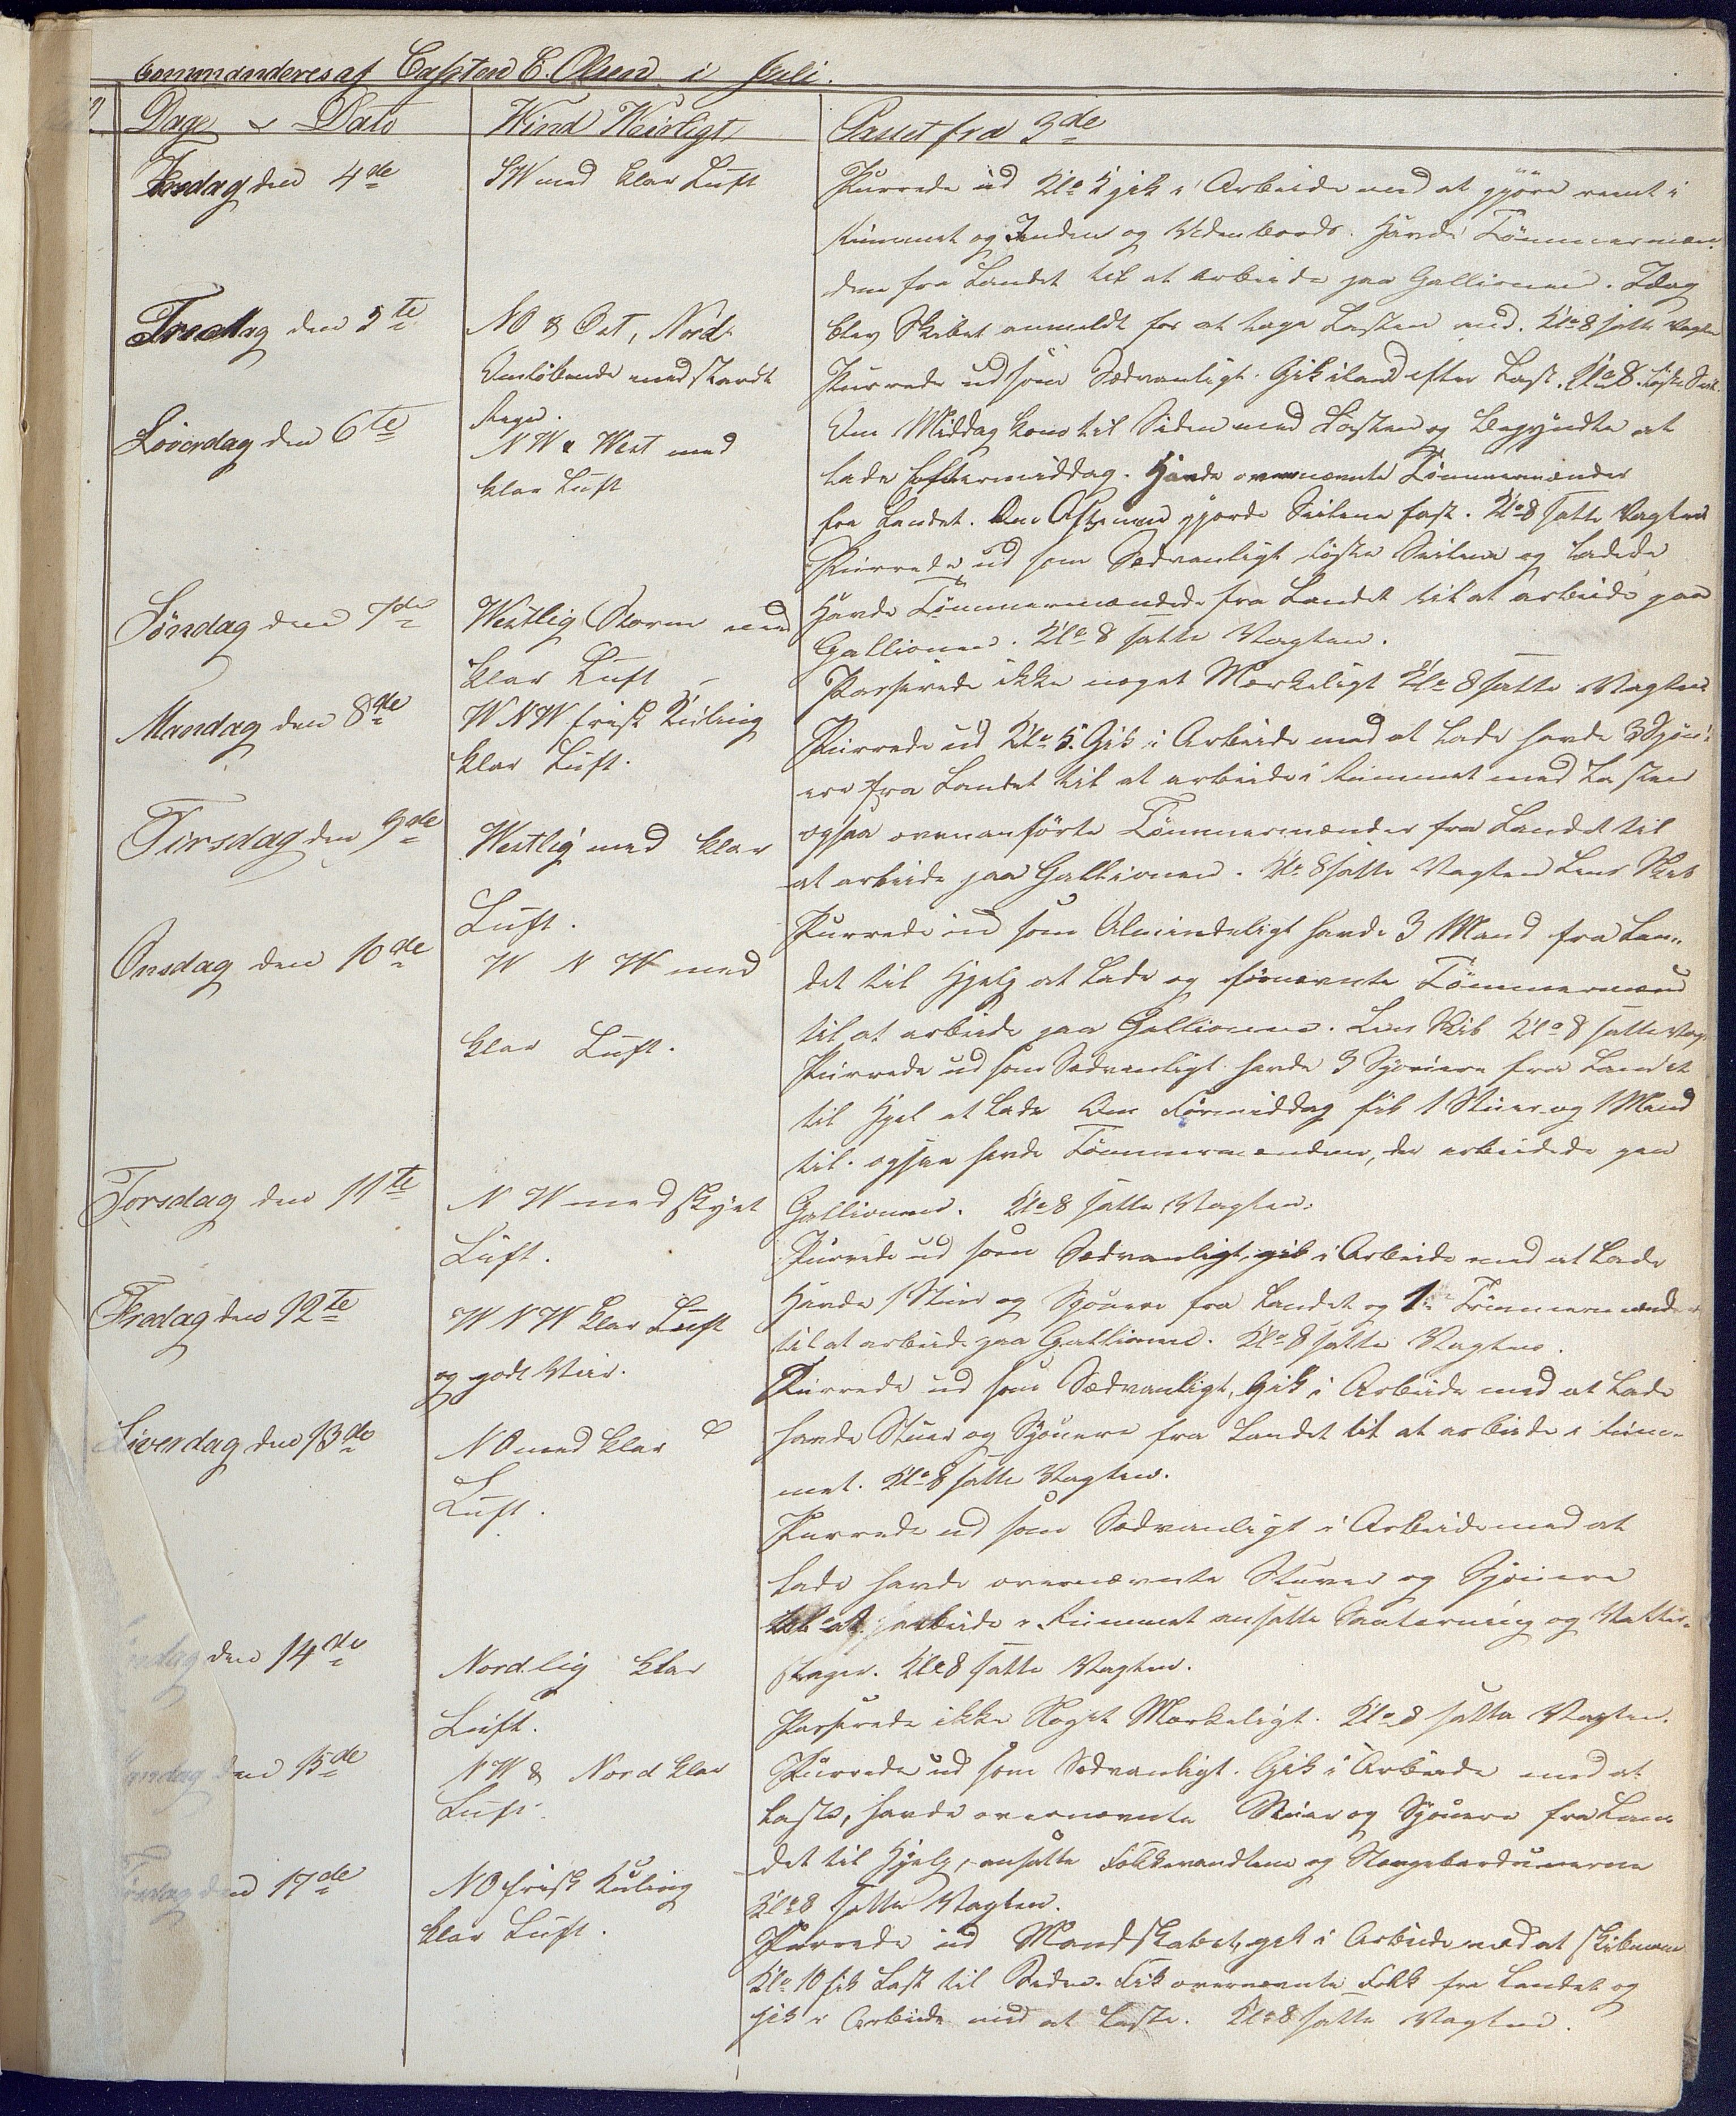 Commanderes af Capten E. Olsen i Juli.
Dage & Dato
Wind Weirligt
Passet fra 3de
Torsdag den 4de
SW med klar Luft
Purrede ud Klo 5 gik i Arbeide med at gjöre reent i
Rummet og Inden og Udenbords. Havde Tömmermæn
dene fra Landet til at arbeide paa Gallionen. Idag
blev Skibet anmeldt for at tage Lasten ind. Klo 8 satte Vagten
Fredag den 5te
NO & Ost, Nord
Omlöbende med stærk
Regn.
Purrede ud som Sædvanligt. Gik iland efter Last. Klo 8 löste Seil.
Om Middag kom til Siden med Lasten og begyndte at
lade Eftermiddag. Havde ovennævnte Tömmermænder
fra Landet. Om Aftenen gjorde Seilene fast. Klo 8 satte Vagten
Löverdag den 6te
NW & West med
klar Luft
Purrede ud som Sædvanligt löste Seilene og ladede
Havde Tömmermændede fra Landet til at arbeide paa
Gallionen. Klo 8 satte Vagten.
Söndag den 7de
Westlig Storm med
klar Luft
Passerede ikke noget Mærkeligt Klo 8 satte Vagten
Mandag den 8de
WNW frisk Kuling
klar Luft.
Purrede ud Klo 5. Gik i Arbeide med at Lade havde 3 Sjöu
ere fra Landet til at arbeide i Rummet med Lasten
ogsaa ovenanförte Tömmermænder fra Landet til
at arbeide paa Gallionen. Klo 8 satte Vagten Lens Skib
Tirsdag den 9de
Westlig med klar
Luft.
Purrede ud som Almindeligt havde 3 Mand fra Lan„
det til Hjelp at Lade og förnævnte Tömmermænd
til at arbeide paa Gallionen. Lens Skib Klo 8 satte Vag
Onsdag den 10de
W N W med
klar Luft.
Purrede ud som Sædvanligt havde 3 Sjouere fra Landet
til Hjel at Lade Om Formiddag fik 1 Stuer og 1 Mand
til. ogsaa havde Tömmermændene, der arbeidede paa
Gallionen. Klo 8 satte Vagten.
Torsdag den 11te
N W med skyet
Luft.
Purrede ud som Sædvanligt, gik i Arbeide med at Lade
Havde 1 Stuer og Sjouere fra Landet og 1 Tömmermænder
til at arbeide paa Gallionen. Klo 8 satte Vagten.
Fredag den 12te
W N W klar Luft
og godt Veir.
Purrede ud som Sædvanligt, Gik i Arbeide med at Lade
havde Stuer og Sjouere fra Landet til at arbeide i Rum-
met. Klo 8 satte Vagten.
Löverdag den 13de
NO med klar
Luft.
Purrede ud som Sædvanligt i Arbeide med at
Lade havde ovennævnte Stuer og Sjouere
til at arbeide i Rummet ansatte Vaterstag og Vatter-
stager. Klo 8 satte Vagten.
Söndag den 14de
Nordlig klar
Luft.
Passerede ikke Noget Mærkeligt. Klo 8 satte Vagten.
Mandag den 15de
NW & Nord klar
Luft.
Purrede ud som Sædvanligt. Gik i Arbeide med at
Laste, havde ovennævnte Stuer og Sjouere fra Lan
det til Hjelp, ansatte Fokkevandtene og Stangebardunerne
Klo 8 satte Vagten.
den 17de
NO frisk Kuling
klar Luft.
Purrede ud Mandskabet, gik i Arbeide med at
Klo 10 fik Last til Siden. Fik ovennævnte Folk fra Landet og
gik i Arbeide med at Laste. Klo 8 satte Vagten.